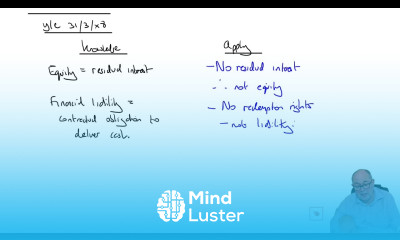 y/e 31/3/x8
Knowledge
Equity = residual interest
Financial liability =
contractual obligation to
deliver cash.
Apply
- No residual interest
∴ not equity
- No redemption rights
- not liability.
Mind
Luster